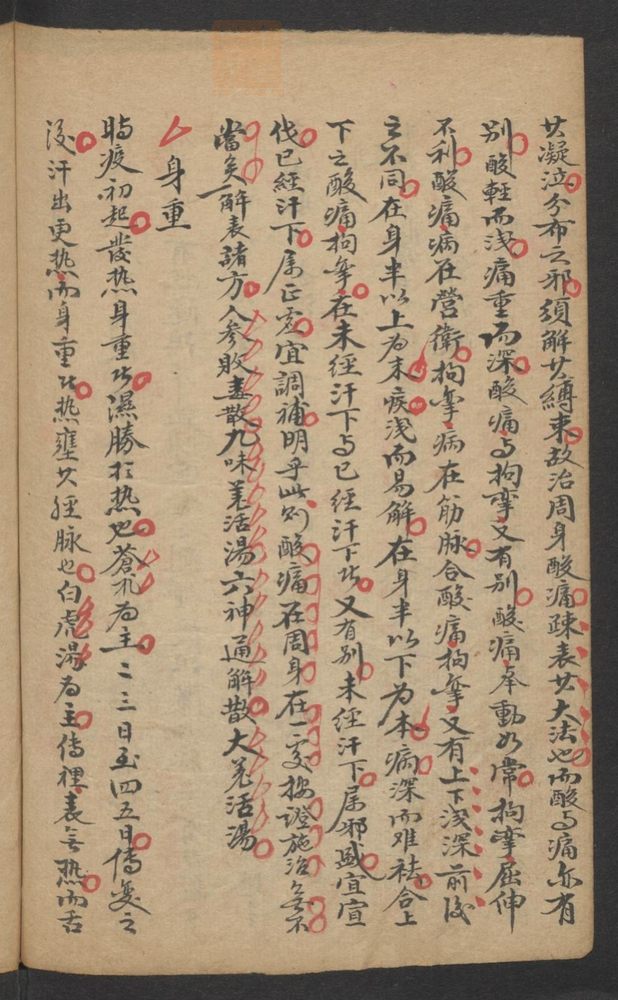 其凝泣分布之邪須解其縛束故治周身酸痛疎表其大法也而酸与痛亦有
別酸輕而浅痛重而深酸痛与拘挛又有別酸痛举動如常拘挛屈伸
不利酸痛病在營衛拘挛病在筋脉合酸痛拘挛又有上下浅深前後
之不同在身半以上为末疾浅而易解在身半以下为本病深而难祛合上
下之酸痛拘挛在未经汗下与已经汗下比又有別未经汗下属邪盛宜宣
伐已經汗下属正虛宜調補明乎此則酸痛在周身在一處按證施治無不
當矣解表諸方人参敗毒散九味羌活湯六神通解散大羌活湯
身重
時疫初起發热身重比濕勝于热也蒼朮为主二三日至四五日傳变之
後汗出更热而身重比热壅其經脉也白虎湯为主傳裡表無热而舌